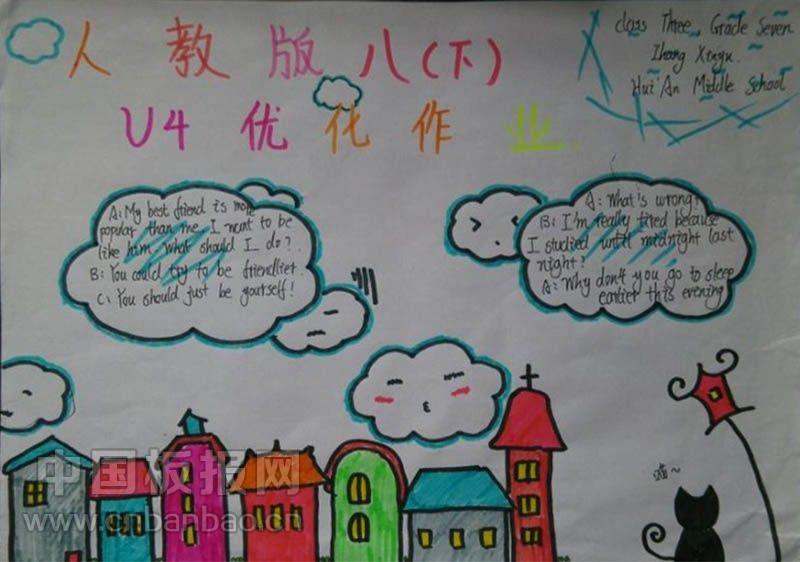 人教版八(下)
U4 优化作业
Class Three, Grade Seven
Zhang Xinyu.
Hui'An Middle School
A: My best friend is more
popular than me. I want to be
like him. What should I do?
B: You could try to be friendlier.
C: You should just be yourself!
A: What's wrong?
B: I'm really tired because
I studied until midnight last
night?
A: Why don't you go to sleep
earlier this evening
喵~
中国板报网
www.cnbanbao.cn